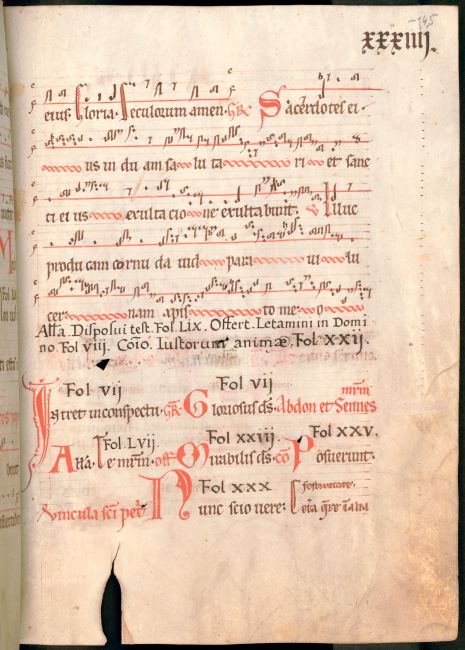 xxxiiij.
eius. Gloria. Seculorum amen. GR. Sacerdotes ei
us in du am sa lu ta ri et sanc
ti ei us exulta cio ne exultabunt. V Illuc
producam cornu da uid para ui lu
cer nam xpisto me o
Alla. Disposui test. Fol. LIX. Offert. Letamini in Domi
no. Fol viij. Coīo. Iustorum animæ, Fol. XXIJ.
Fol vij Fol vij mrm
Intret in conspectu. GR. Gloriosus ds. Abdon et Sennes
Fol. LVIJ. Fol xxiij. Fol XXV.
Alla. Te mrm. off. Mirabilis ds. cō Posuerunt.
Fol xxx
Ad vincula sci petri Nunc scio uere: